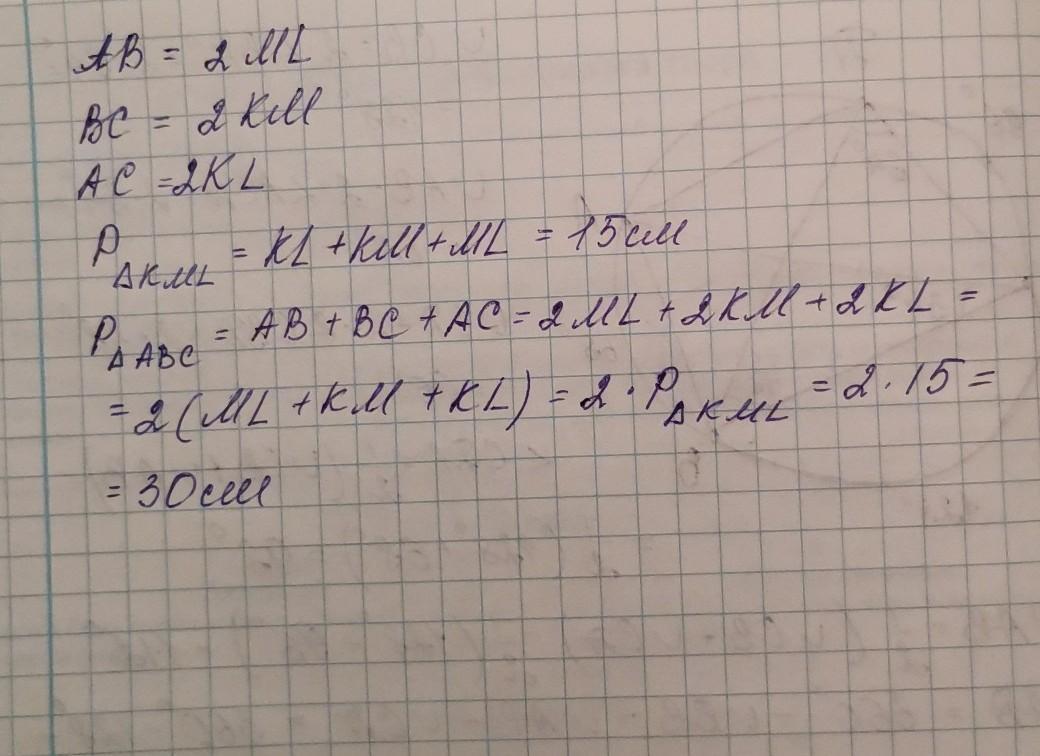 AB = 2 ML
BC = 2 KM
AC = 2KL
P△KML = KL + KM + ML = 15 см
P△ABC = AB + BC + AC = 2 ML + 2 KM + 2 KL =
= 2 (ML + KM + KL) = 2 · P△KML = 2 · 15 =
= 30 см